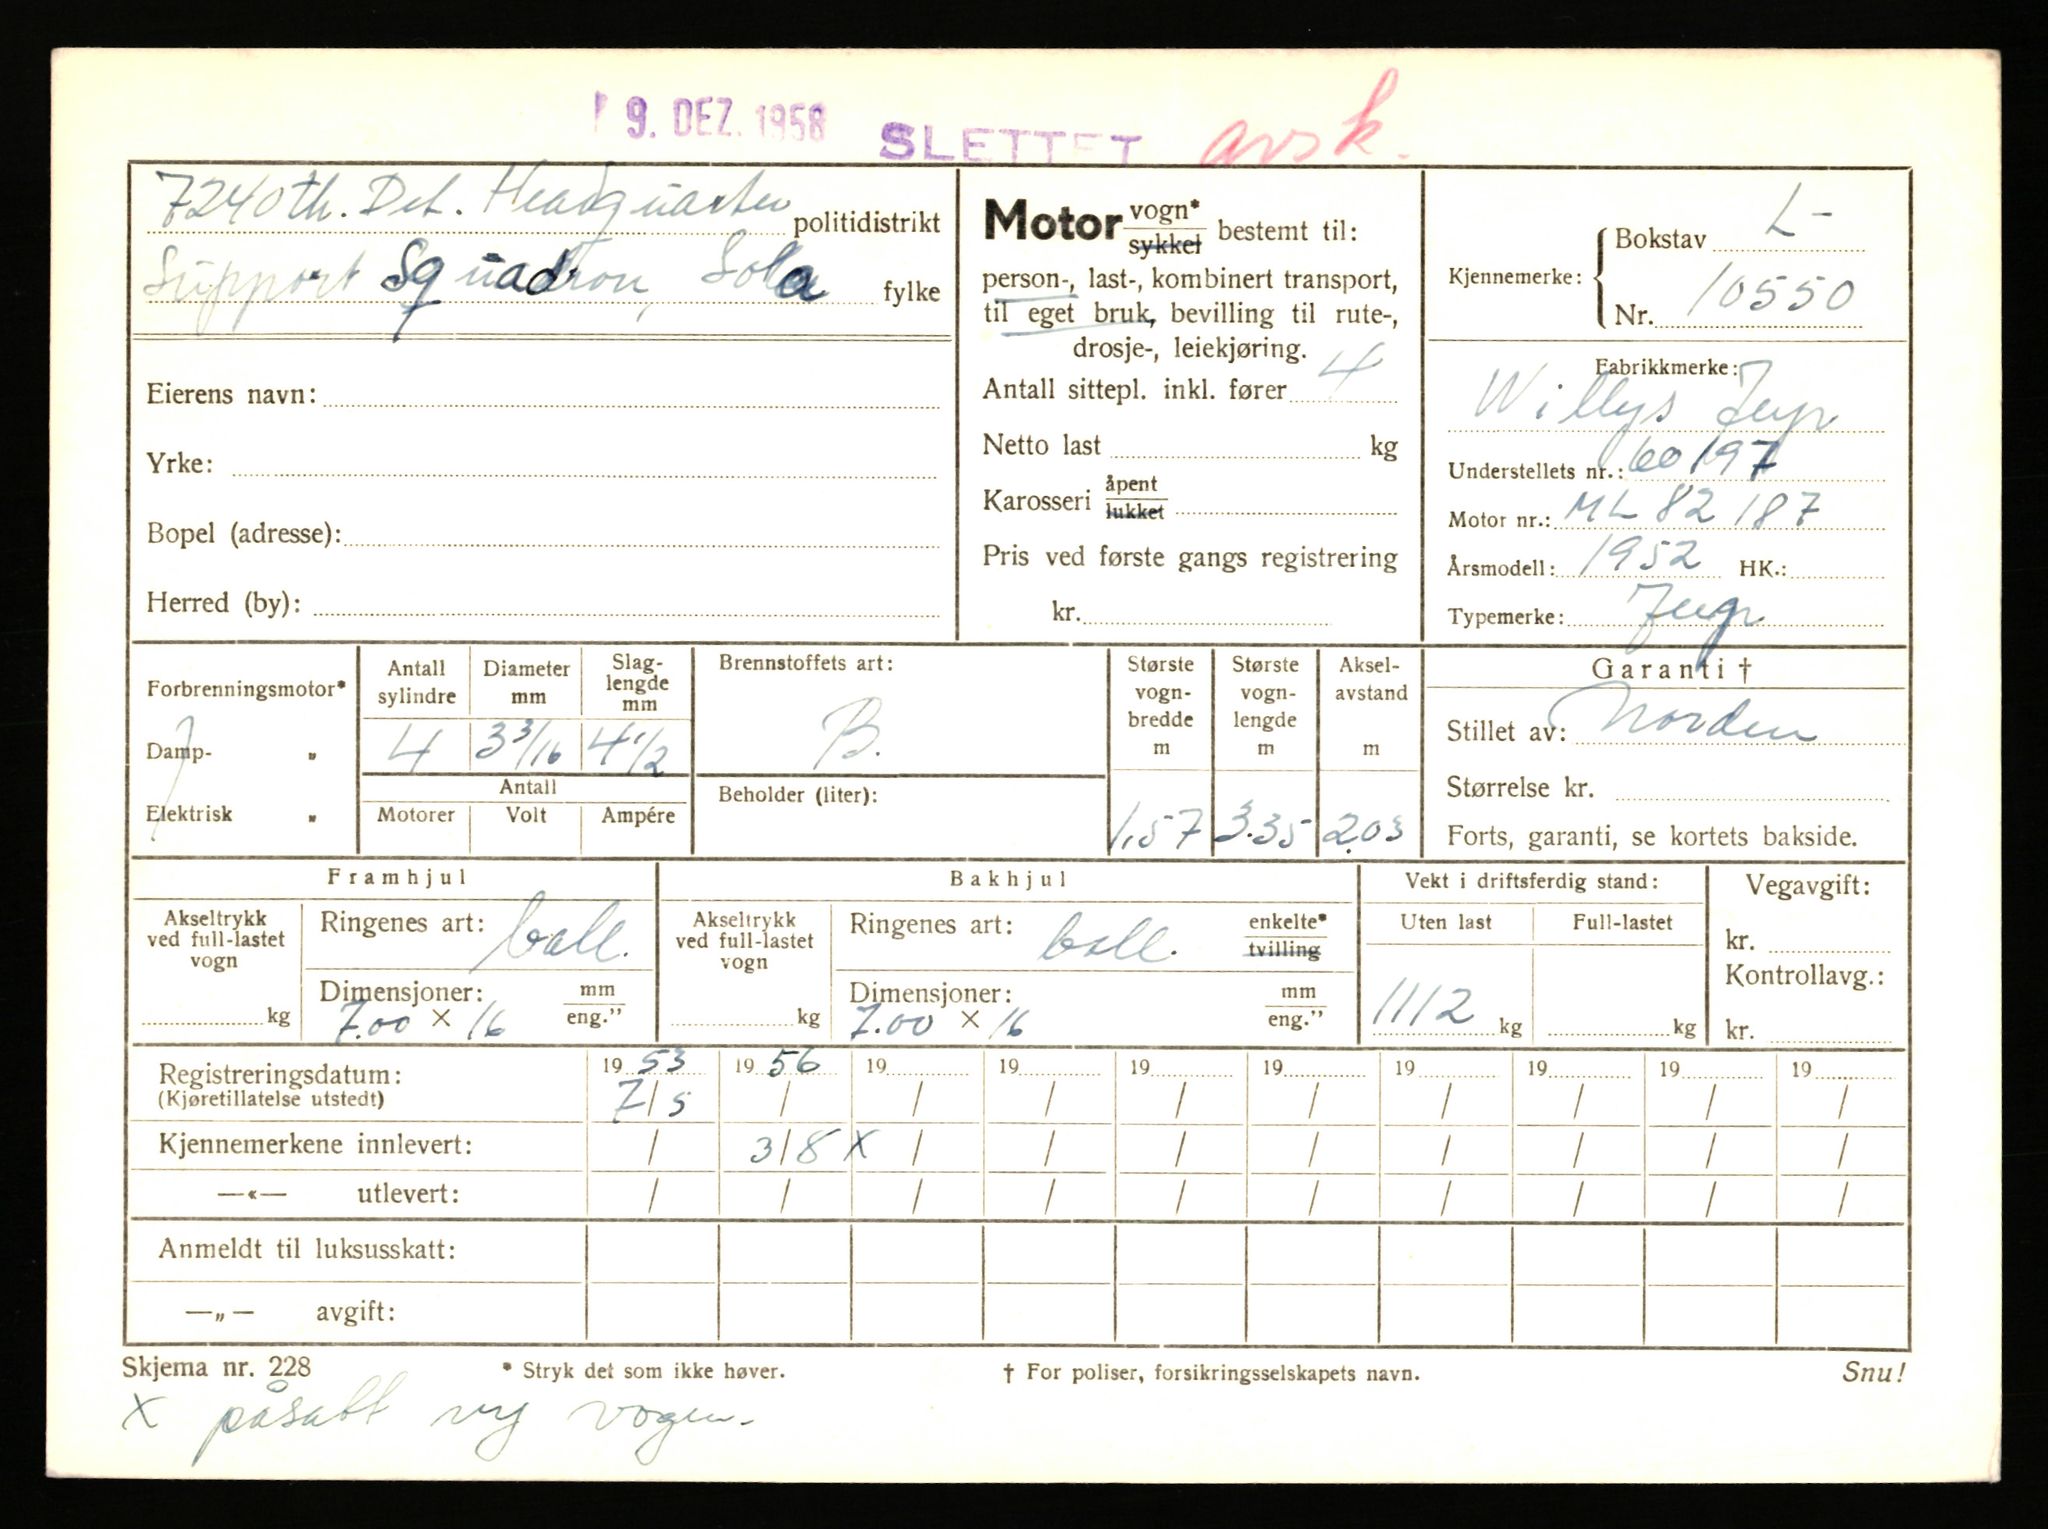 9. DEZ. 1958 SLETTET avsk.
7240th. Det. Headquarter politidistrikt
Support Squadron, Sola fylke
Eierens navn:
Yrke:
Bopel (adresse):
Herred (by):
Motor vogn* / sykkel bestemt til:
person-, last-, kombinert transport,
til eget bruk, bevilling til rute-,
drosje-, leiekjøring.
Antall sittepl. inkl. fører 4
Netto last kg
Karosseri åpent / lukket
Pris ved første gangs registrering
kr.
Kjennemerke: Bokstav L-
Nr. 10550
Fabrikkmerke:
Willys Jeep
Understellets nr.: 60197
Motor nr.: ML 82187
Årsmodell: 1952 HK.:
Typemerke: Jeep
Forbrenningsmotor*
Damp- „
Elektrisk „
Antall sylindre Diameter mm Slag-lengde mm
4 3 3/16 4 1/2
Antall
Motorer Volt Ampére
Brennstoffets art:
B.
Beholder (liter):
Største vogn-bredde m Største vogn-lengde m Aksel-avstand m
1,57 3.35 2.03
Garanti †
Stillet av: Norden
Størrelse kr.
Forts, garanti, se kortets bakside.
Framhjul
Akseltrykk ved full-lastet vogn
kg
Ringenes art: ball.
Dimensjoner: mm / eng.”
7.00 x 16
Bakhjul
Akseltrykk ved full-lastet vogn
kg
Ringenes art: ball. enkelte* / tvilling
Dimensjoner: mm / eng.”
7.00 x 16
Vekt i driftsferdig stand:
Uten last Full-lastet
1112 kg kg
Vegavgift:
kr.
Kontrollavg.:
kr.
Registreringsdatum: 19 53 19 56 19 19 19 19 19 19 19 19
(Kjøretillatelse utstedt) 7/5 / / / / / / / / /
Kjennemerkene innlevert: / 3/8 x / / / / / / / /
—«— utlevert: / / / / / / / / / /
Anmeldt til luksusskatt:
—„— avgift:
Skjema nr. 228 * Stryk det som ikke høver. † For poliser, forsikringsselskapets navn. Snu!
x påsatt ny vogn.